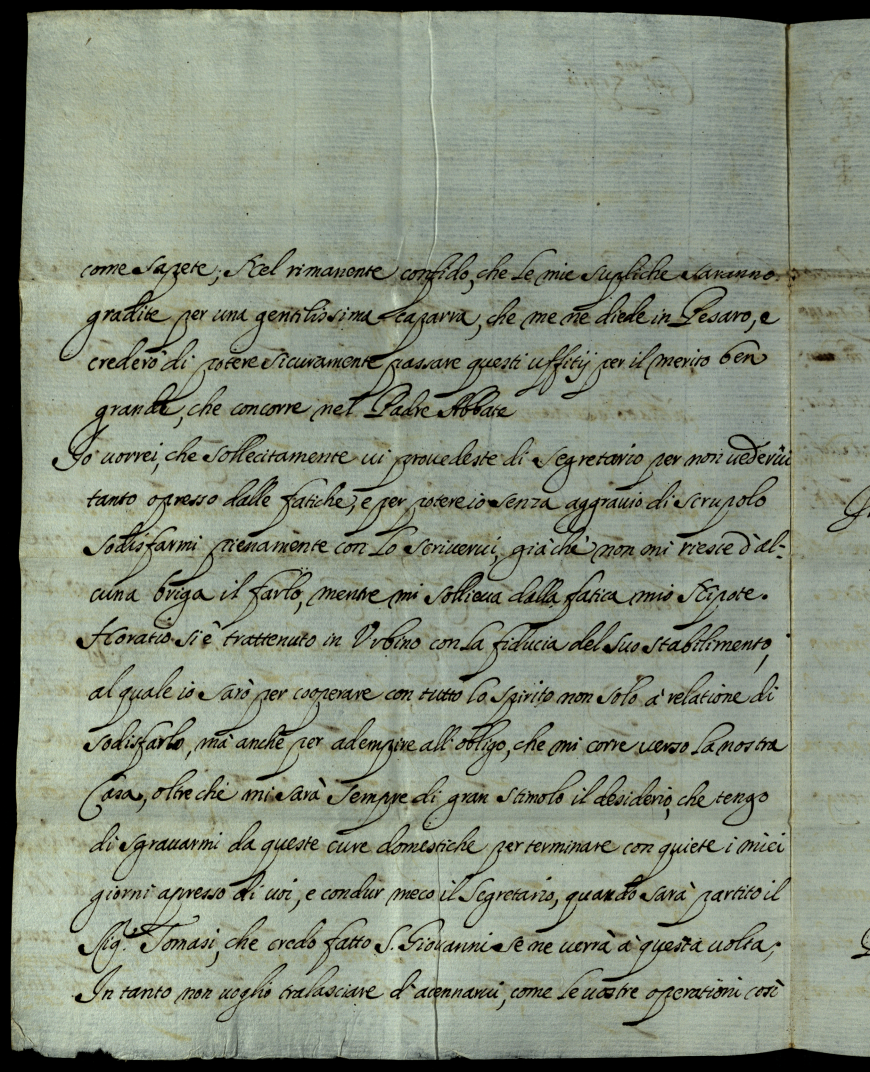 come sapete; Nel rimanente confido, che le mie supliche saranno
gradite per una gentilissima caparra, che me ne diede in Pesaro, e
crederò di potere sicuramente passare questi uffitij per il merito ben
grande, che concorre nel Padre Abbate
Io vorrei, che sollecitamente vi provedeste di segretario per non vedervi
tanto opresso dalle fatiche, e per potere io senza aggravio di scrupolo
sodisfarmi pienamente con lo scrivervi, già che non mi riesce d'al-
cuna briga il farlo, mentre mi sollieva dalla fatica mio Nipote.
Horatio si è trattenuto in Urbino con la fiducia del suo stabilimento,
al quale io sarò per cooperare con tutto lo spirito non solo à relatione di
sodisfarlo, mà anche per adempire all'obligo, che mi corre verso la nostra
Casa, oltre che mi sarà sempre di gran stimolo il desiderio, che tengo
di sgravarmi da queste cure domestiche per terminare con quiete i miei
giorni apresso di voi, e condur meco il segretario, quando sarà partito il
Sig.r Tomasi, che credo fatto S. Giovanni se ne verrà à questa volta;
In tanto non voglio tralasciare d'acennarvi, come le vostre operationi così